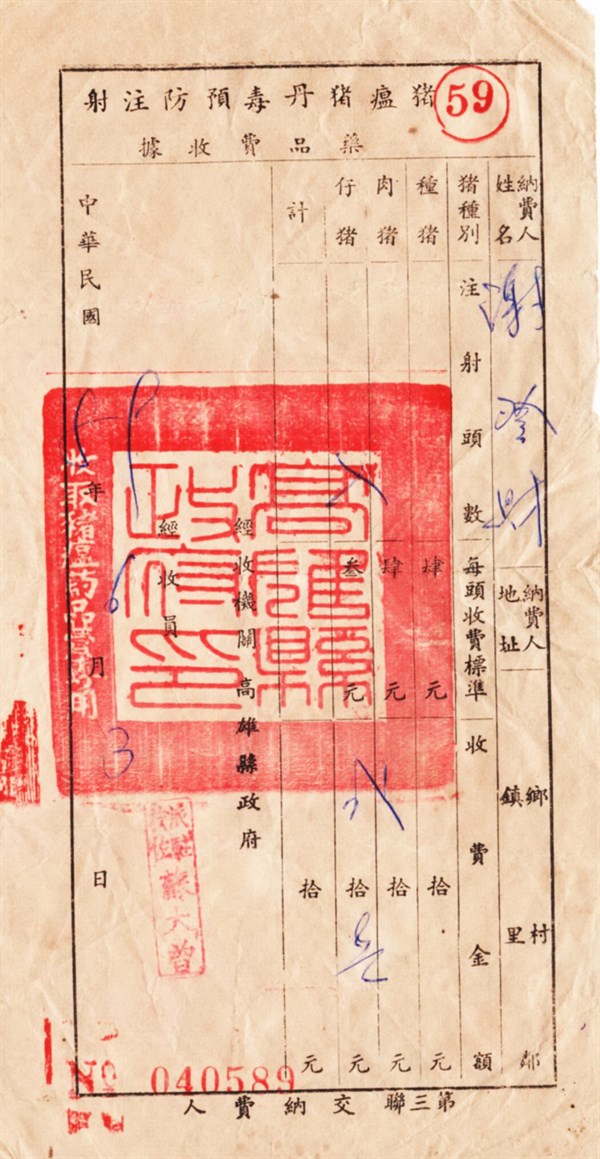 59
猪瘟猪丹毒預防注射
藥品費收據
納費人姓名 謝 財
納費人地址 鄉鎮 村里 鄰
猪種別 注射頭數 每頭收費標準 收費金額
種猪 肆元 拾 元
肉猪 肆元 拾 元
仔猪 叁元 拾 元
計 拾 元
經收機關高雄縣政府
經收員
高雄縣政府印
中華民國 59 年 6 月 3 日
№ 040589
第三聯交納費人